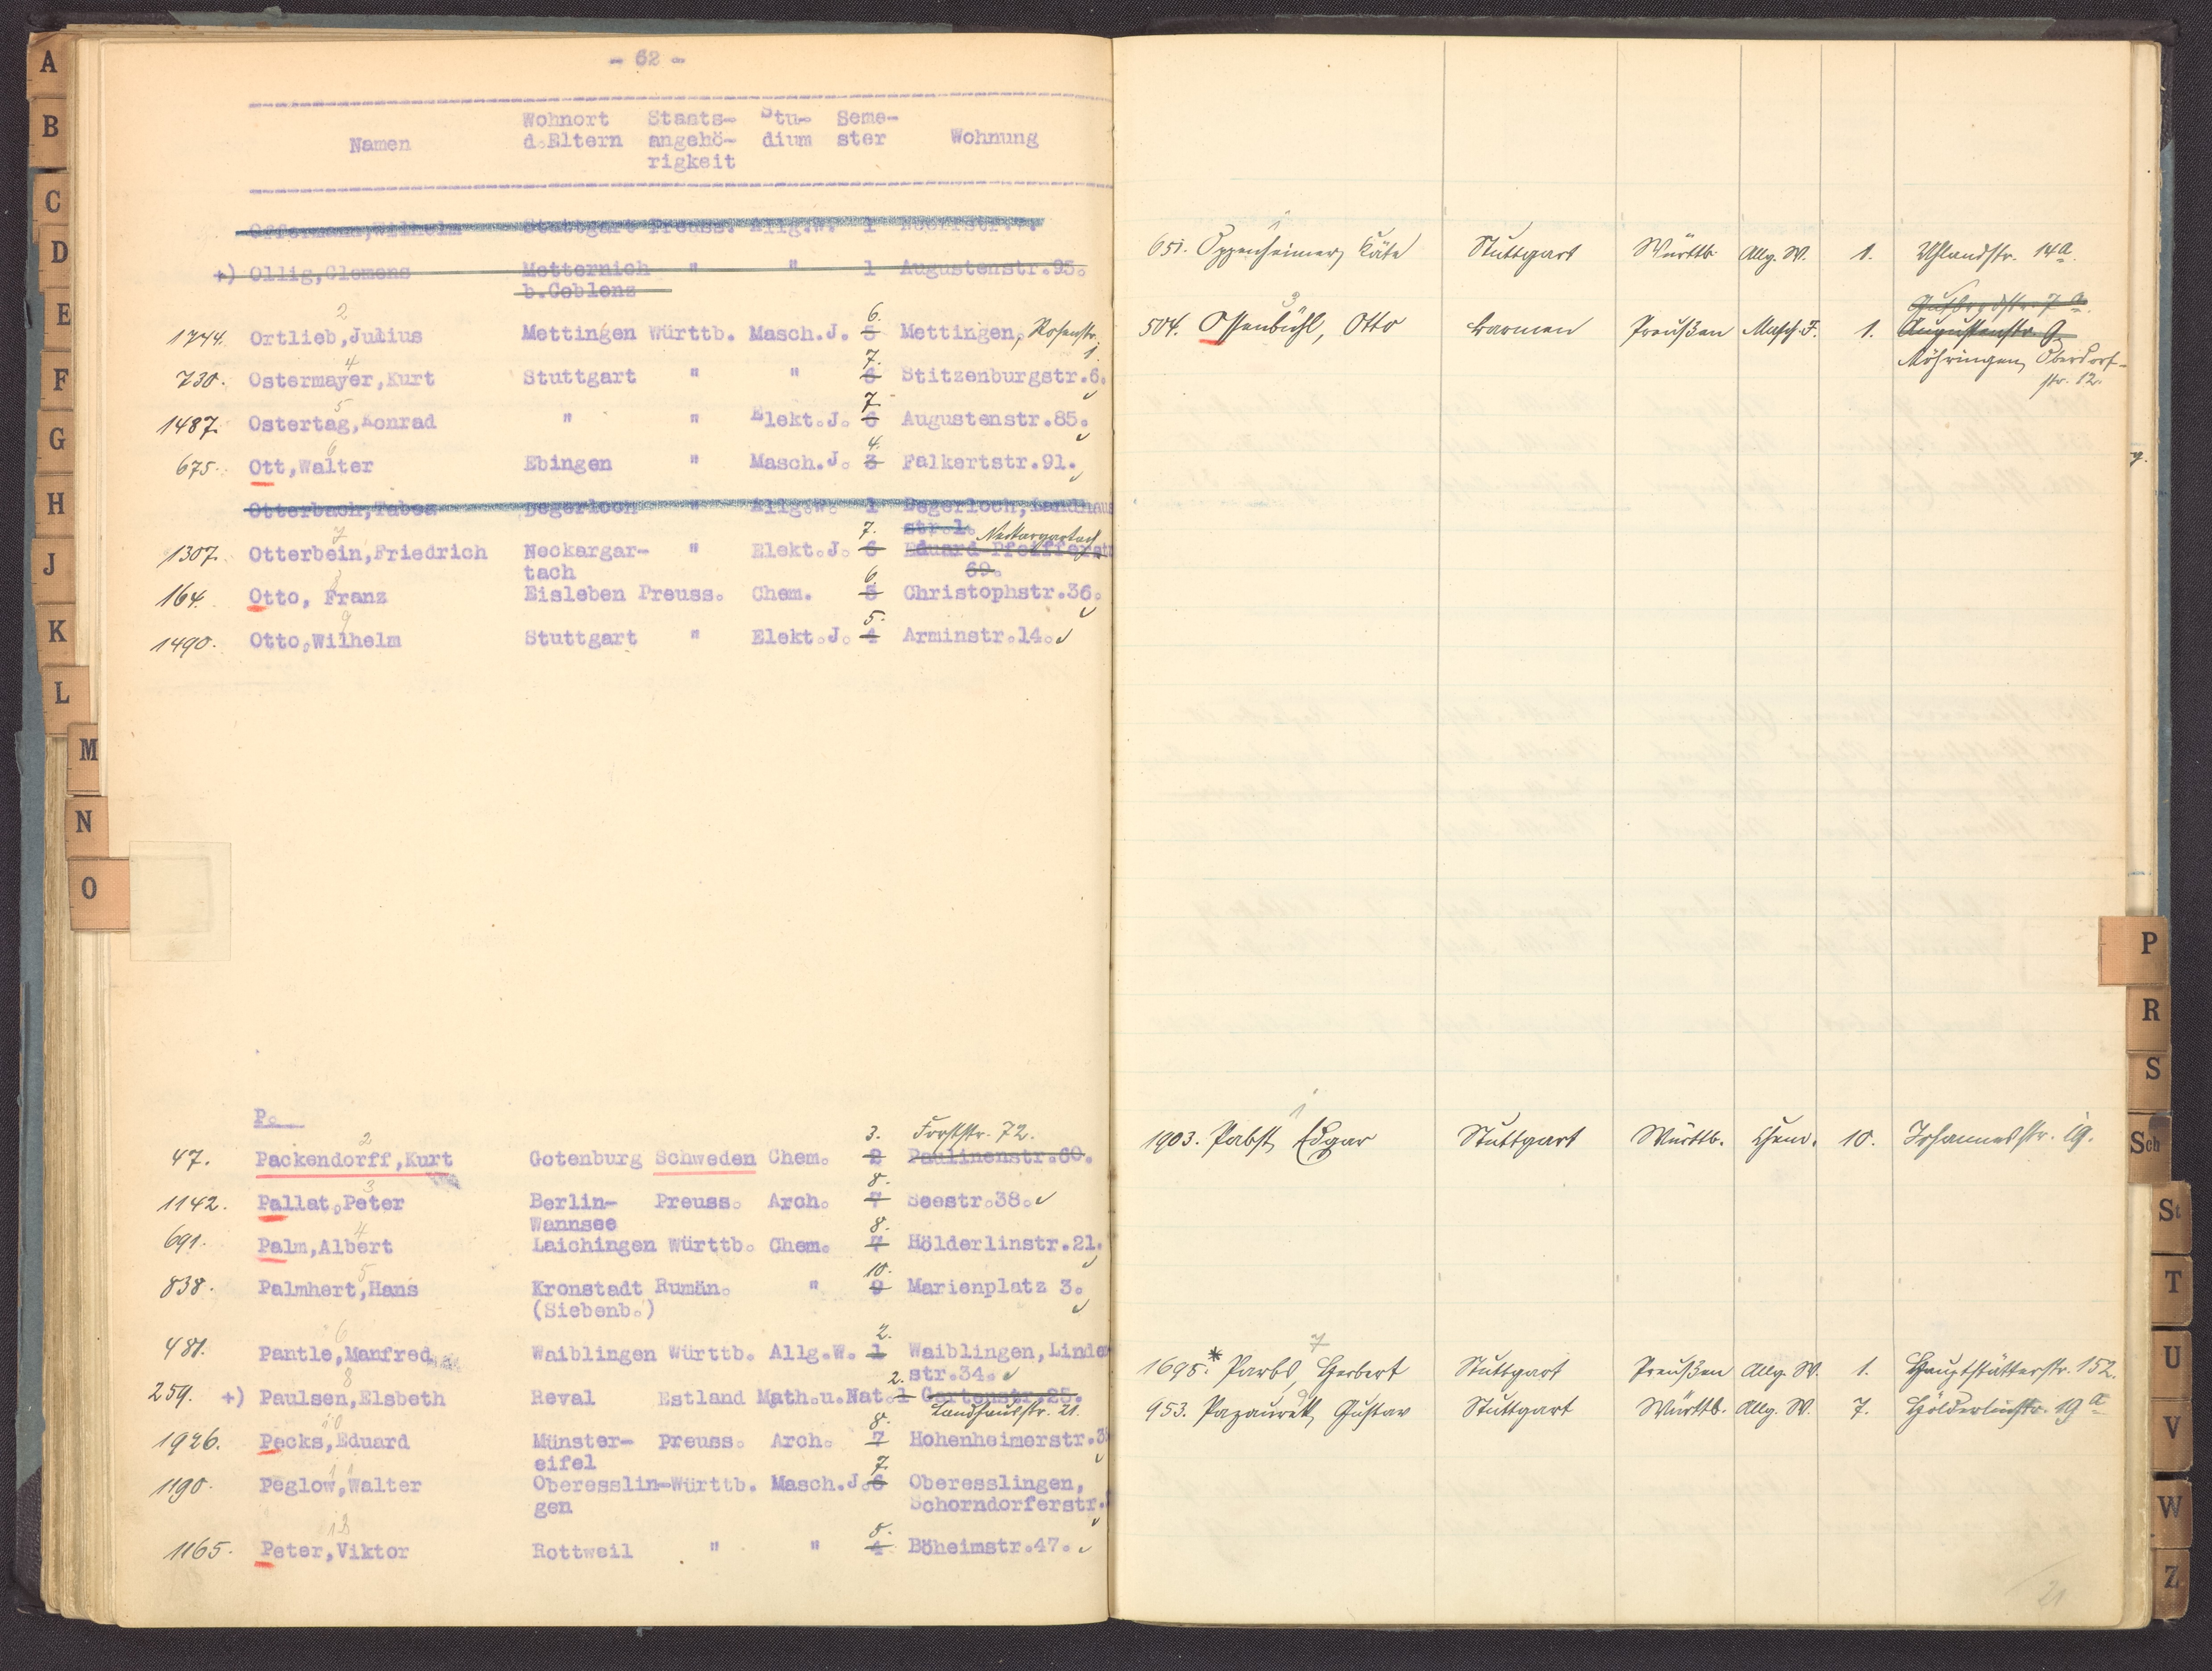 - 62 -
Namen Wohnort d.Eltern Staats-angehö-rigkeit Stu-dium Seme-ster Wohnung
Offermann,Wilhelm Stuttgart Preuss. Allg.W. 1
+) Ollig,Clemens Metternich " " 1 Augustenstr.93.
b.Coblenz
2
6.
1744. Ortlieb,Julius Mettingen Württb. Masch.J. 5 Mettingen, Rosenstr. 1.
4
7.
730. Ostermayer,Kurt Stuttgart " " 6 Stitzenburgstr.6.
5
7.
1487. Ostertag,Konrad " " Elekt.J. 6 Augustenstr.85.
6
4.
675. Ott,Walter Ebingen " Masch.J. 3 Falkertstr.91.
Otterbach,Tabea Degerloch " Allg.W. 1 Degerloch,Landhaus
str.1.
7
7.
Neckargartach
1307. Otterbein,Friedrich Neckargar- " Elekt.J. 6 Eduard Pfeifferstr
tach 69.
8
6.
164. Otto, Franz Eisleben Preuss. Chem. 5 Christophstr.36.
9
5.
1490. Otto,Wilhelm Stuttgart " Elekt.J. 4 Arminstr.14.
P.
2
3. Forststr. 72.
47. Packendorff,Kurt Gotenburg Schweden Chem. 2 Paulinenstr.60.
3
8.
1142. Pallat,Peter Berlin- Preuss. Arch. 7 Seestr.38.
Wannsee
4
8.
691. Palm,Albert Laichingen Württb. Chem. 7 Hölderlinstr.21.
5
10.
838. Palmhert,Hans Kronstadt Rumän. " 9 Marienplatz 3.
(Siebenb.)
6
2.
481. Pantle,Manfred Waiblingen Württb. Allg.W. 1 Waiblingen,Linden
str.34.
8
2.
259. +) Paulsen,Elsbeth Reval Estland Math.u.Nat.1 Gartenstr.25.
Landhausstr. 21.
10
8.
1926. Pecks,Eduard Münster- Preuss. Arch. 7 Hohenheimerstr.3
eifel
11
7.
1190. Peglow,Walter Oberesslin-Württb. Masch.J.6 Oberesslingen,
gen Schorndorferstr.
12
5.
1165. Peter,Viktor Rottweil " " 4 Böheimstr.47.
1
651. Oppenheimer, Käte Stuttgart Württb. Allg. W. 1. Uhlandstr. 14a.
3
504. Ossenbühl, Otto Barmen Preußen Masch. J. 1. Augustenstr. 9
Möhringen, Oberdorf-
str. 12.
1
1903. Pabst, Edgar Stuttgart Württb. Chem. 10. Johannesstr. 19.
7
1698. * Parbs, Herbert Stuttgart Preußen Allg. W. 1. Hauptstätterstr. 152.
9
953. Pazaurek, Gustav Stuttgart Württb. Allg. W. 7. Hölderlinstr. 19a
21
A
B
C
D
E
F
G
H
J
K
L
M
N
O
P
R
S
Sch
St
T
U
V
W
Z